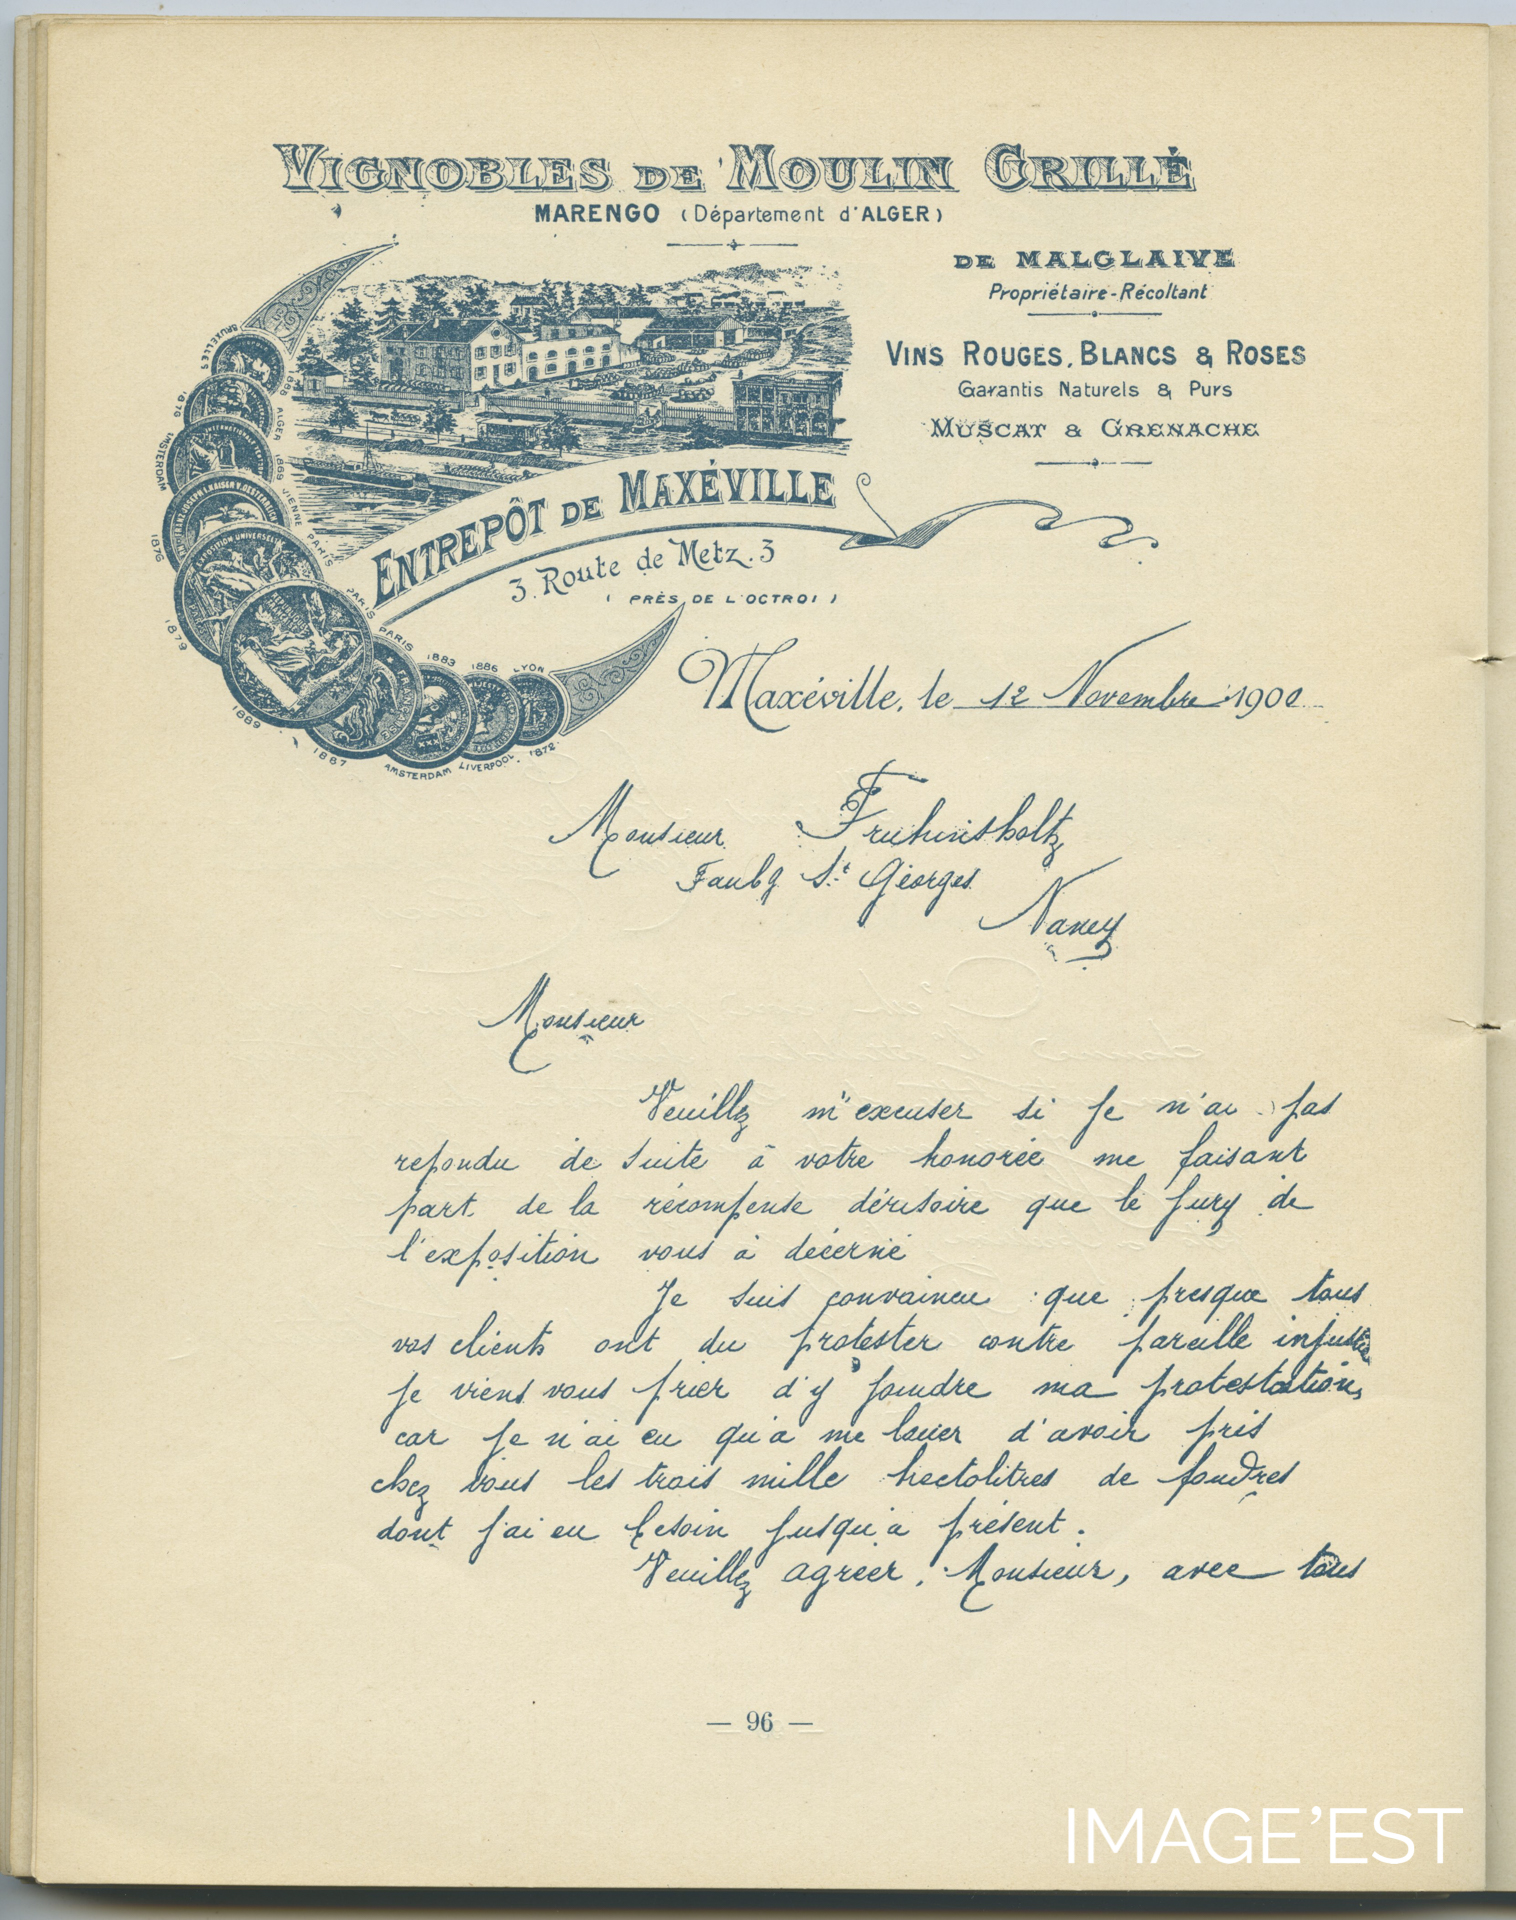 VIGNOBLES DE MOULIN GRILLÉ
MARENGO (Département d'ALGER)
DE MALGLAIVE
Propriétaire-Récoltant
VINS ROUGES, BLANCS & ROSES
Garantis Naturels & Purs
MUSCAT & GRENACHE
BRUXELLES
1888
1876
ALGER
AMSTERDAM
1869
VIENNE
1876
PARIS
EXPOSITION UNIVERSELLE
1879
PARIS
1889
PARIS
1887
1883
AMSTERDAM
1886
LIVERPOOL
LYON
1872
ENTREPÔT DE MAXÉVILLE
3. Route de Metz. 3
( PRÈS DE L'OCTROI )
Maxéville, le 12 Novembre 1900
Monsieur Fruhinsholtz
Faubg St Georges
Nancy
Monsieur
Veuillez m'excuser si je n'ai pas
repondu de suite à votre honorée me faisant
part de la récompense dérisoire que le jury de
l'exposition vous à décerné
Je suis convaincu que presque tous
vos clients ont du protester contre pareille injustice
je viens vous prier d'y joindre ma protestation,
car je n'ai eu qu'a me louer d'avoir pris
chez vous les trois mille hectolitres de foudres
dont j'ai eu besoin jusqu'a présent.
Veuillez agréer, Monsieur, avec tous
— 96 —
IMAGE'EST